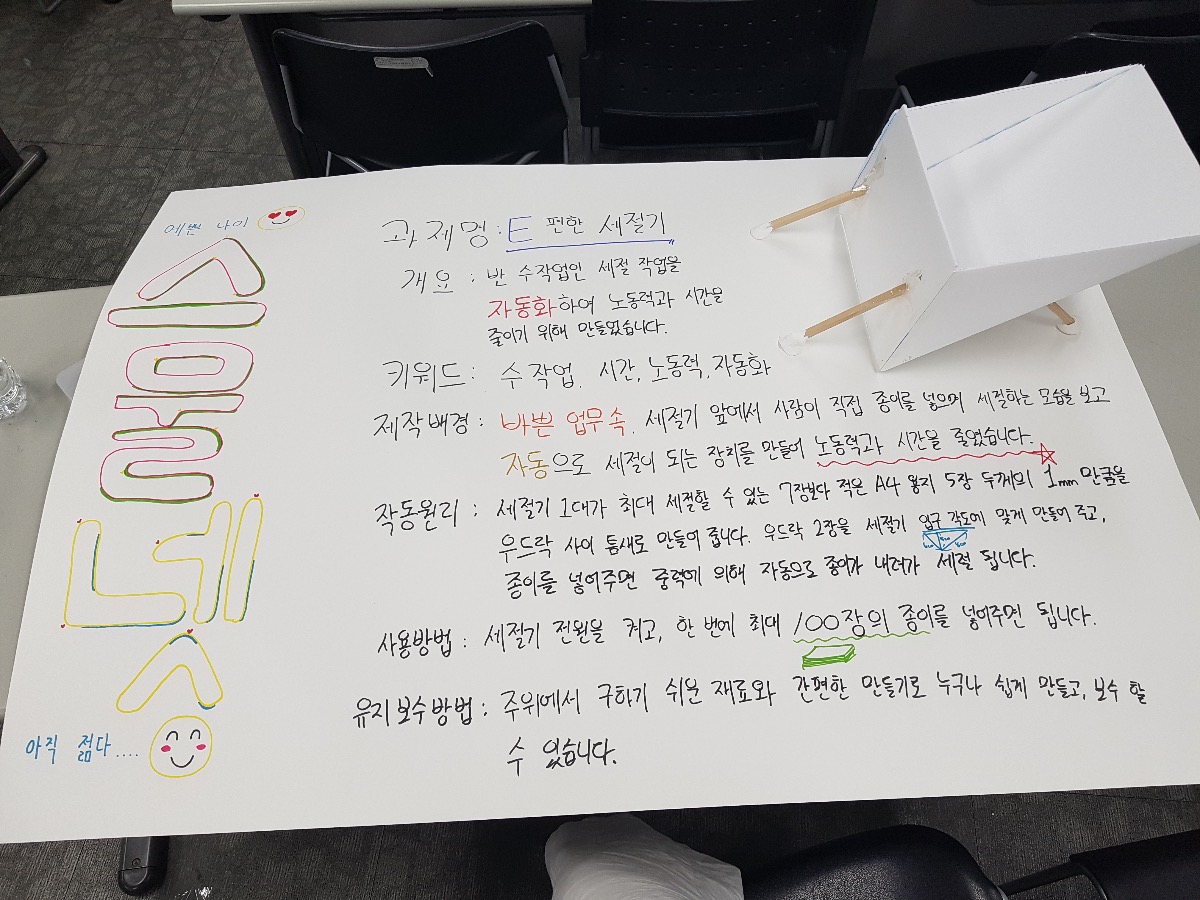 예쁜 나이
시물네살
아직 젊다....
과제명 : E 편한 세절기
개요 : 반 수작업인 세절 작업을
자동화하여 노동력과 시간을
줄이기 위해 만들었습니다.
키워드 : 수작업, 시간, 노동력, 자동화
제작배경 : 바쁜 업무 속, 세절기 앞에서 사람이 직접 종이를 넣으며 세절하는 모습을 보고
자동으로 세절이 되는 장치를 만들어 노동력과 시간을 줄였습니다.
작동원리 : 세절기 1대가 최대 세절할 수 있는 7장보다 적은 A4 용지 5장 두께의 1mm 만큼을
우드락 사이 틈새로 만들어 줍니다. 우드락 2장을 세절기 입구 각도에 맞게 만들어 주고,
종이를 넣어주면 중력에 의해 자동으로 종이가 내려가 세절 됩니다.
사용방법 : 세절기 전원을 켜고, 한 번에 최대 100장의 종이를 넣어주면 됩니다.
유지보수방법 : 주위에서 구하기 쉬운 재료와 간편한 만들기로 누구나 쉽게 만들고, 보수 할
수 있습니다.